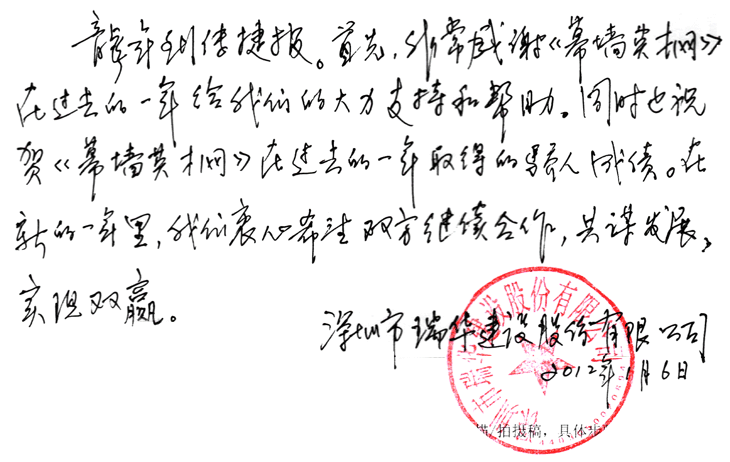 龙年到传捷报。首先,非常感谢《幕墙英才网》
在过去的一年给我们的大力支持和帮助。同时也祝
贺《幕墙英才网》在过去的一年取得的骄人成绩。在
新的一年里,我们衷心希望双方继续合作,共谋发展,
实现双赢。
深圳市瑞华建设股份有限公司
2012年1月6日
深圳市瑞华建设股份有限公司
拍摄稿,具体